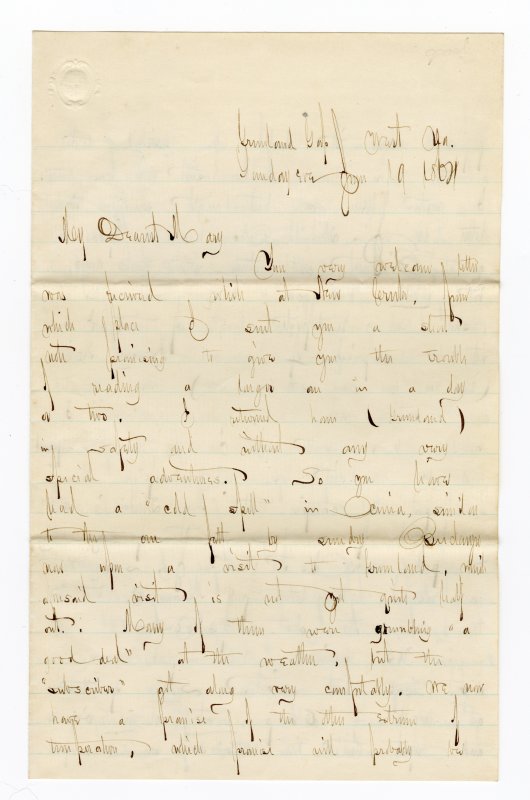 Greenland Gap West Va.
Sunday eve Jan 19 1864
My Dearest Mary
Your very welcome letter
was received while at New Creek, from
which place I sent you a short
note promising to give you the trouble
of reading a larger one in a day
or two. I returned home (Greenland)
in safety and without any very
special adventures. So you have
had a "cold" "spell" in Xenia, similar
to the one felt by sundry
now upon a visit to Greenland, which
aforesaid visit is not yet quite half
out. Many of them were grumbling "a
good deal" at the weather, but the
"subscriber" got along very comfortably. We now
have a promise of the other extreme of
temperature, which promise will probably be